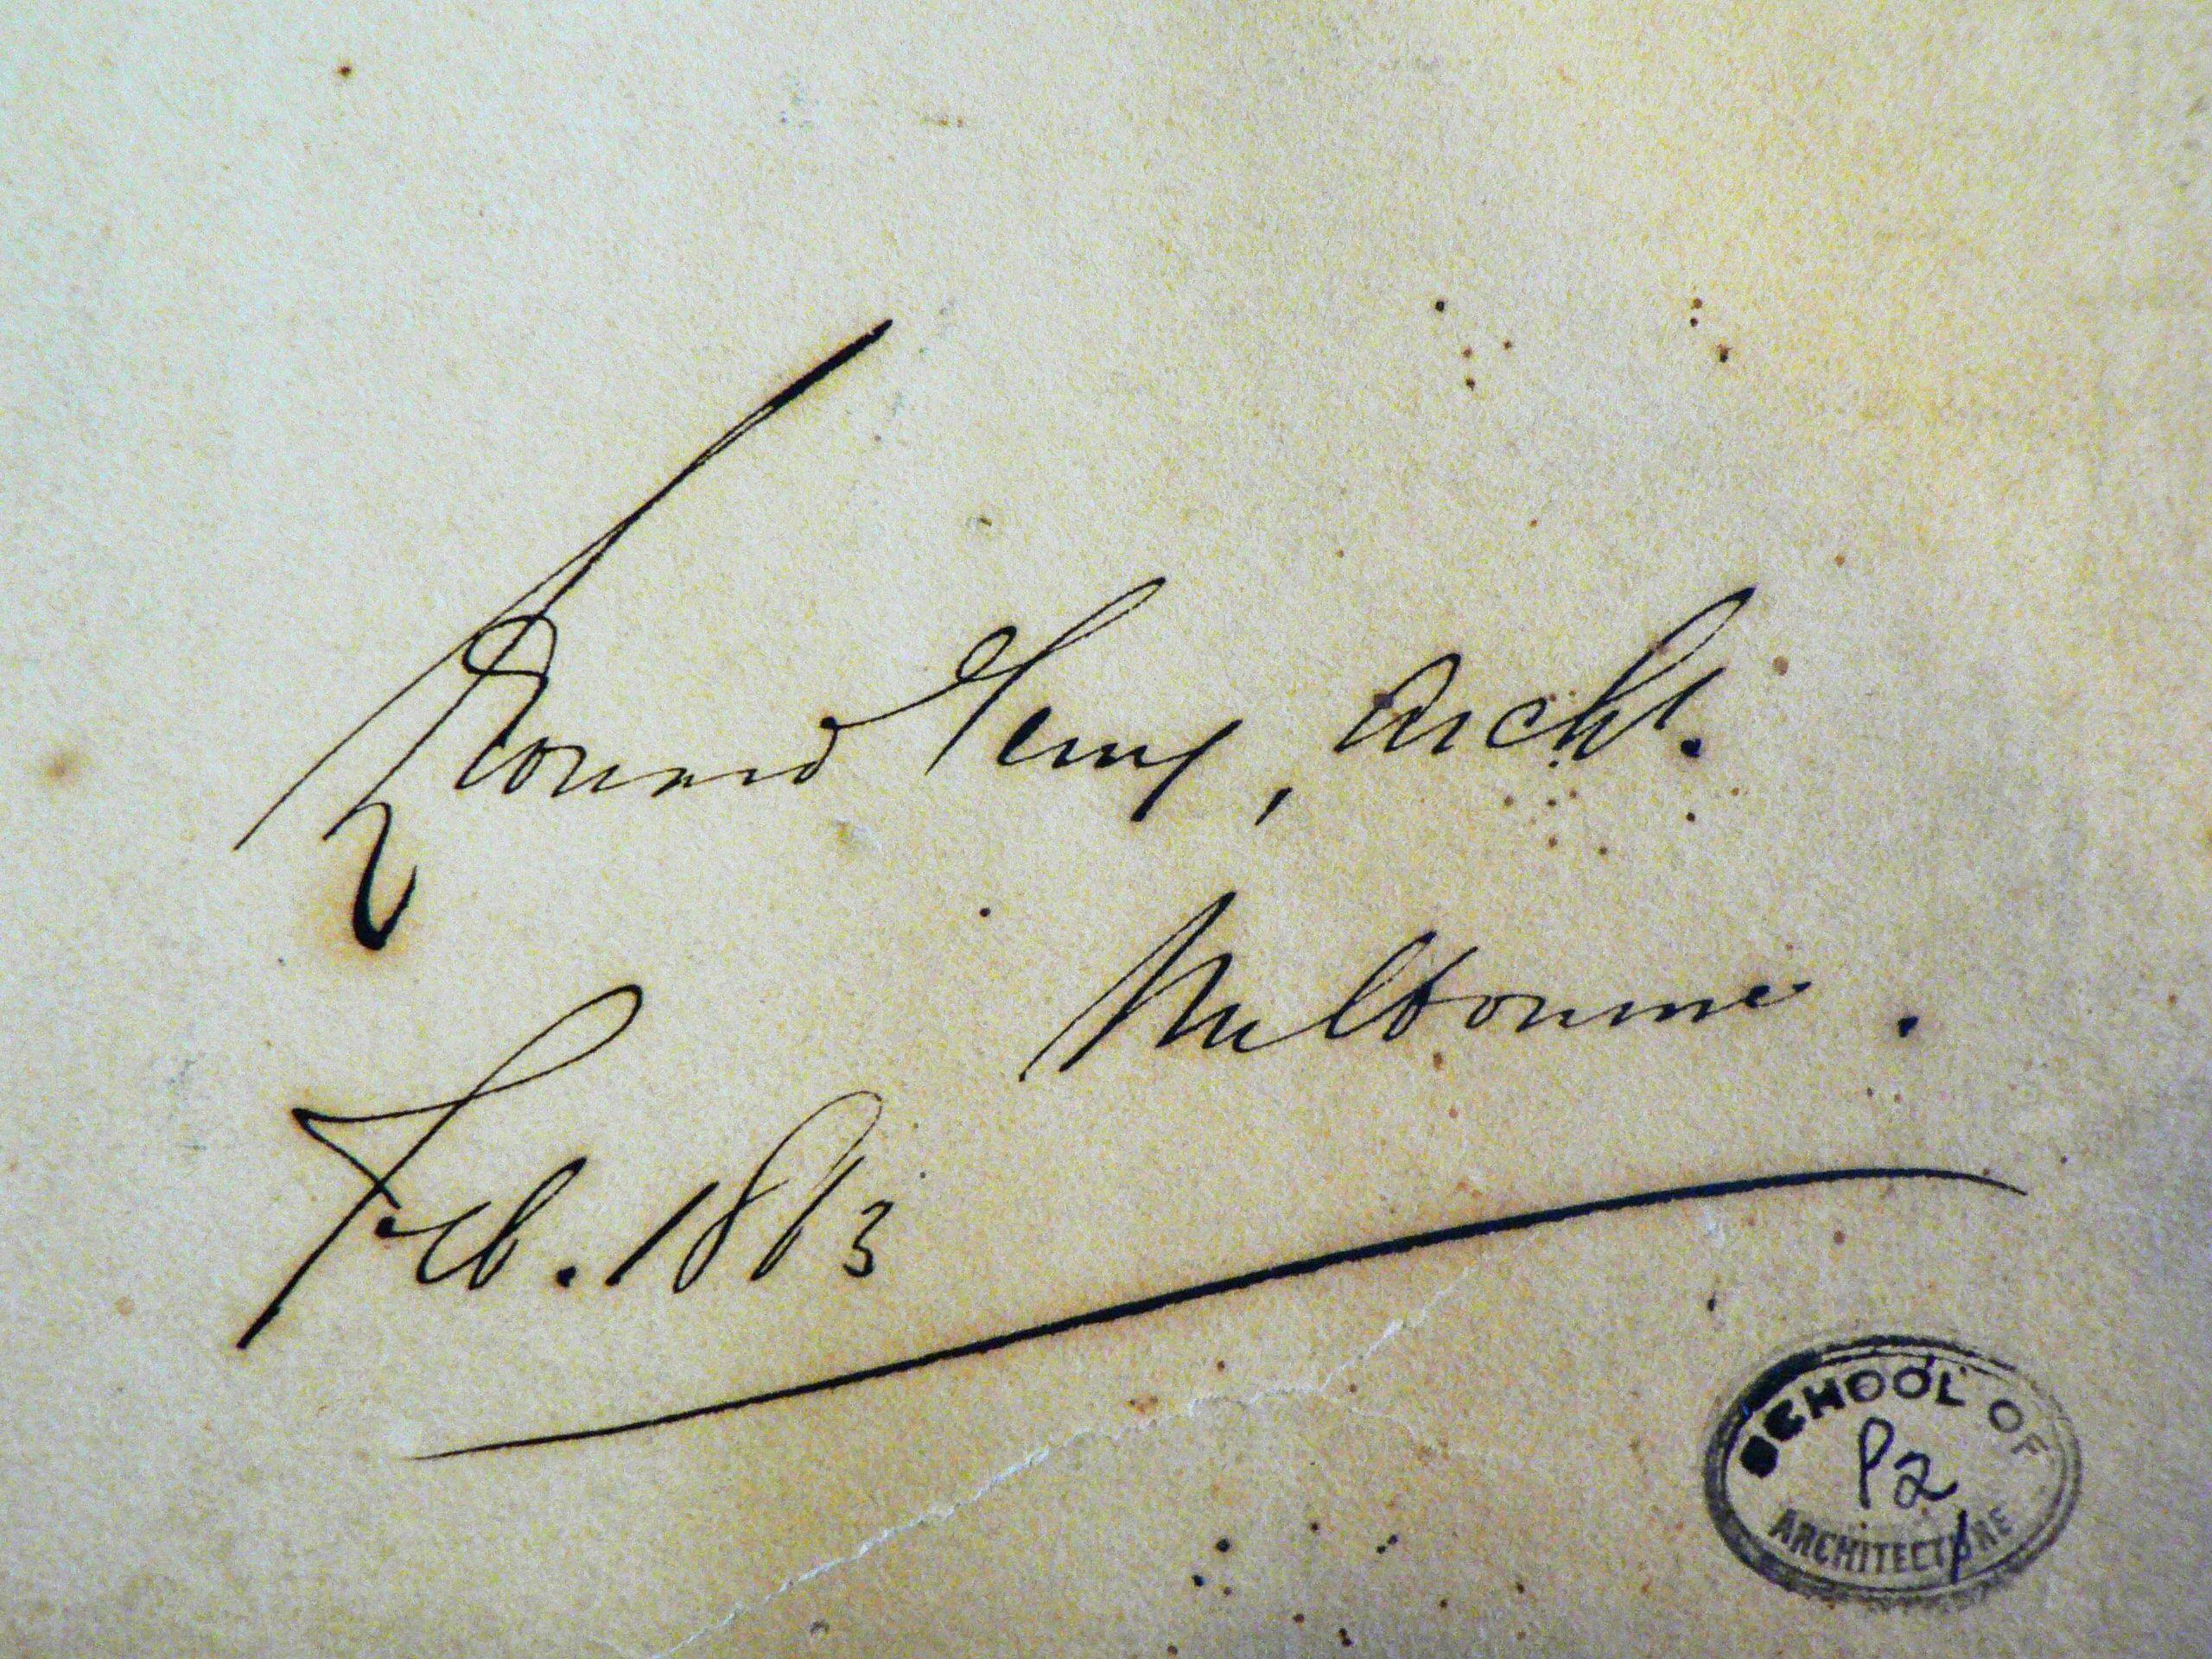 Leonard Terry, Archt.
Melbourne.
Feb. 1863
SCHOOL OF
P2
ARCHITECTURE